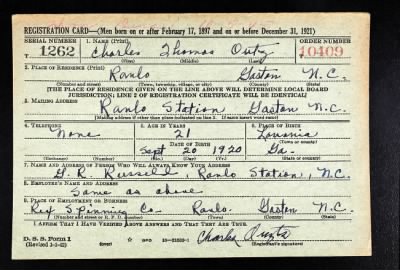 REGISTRATION CARD—(Men born on or after February 17, 1897 and on or before December 31, 1921)
SERIAL NUMBER 1. NAME (Print) ORDER NUMBER
1262 Charles Thomas 10409
(First) (Middle) (Last)
2. PLACE OF RESIDENCE (Print)
Ranlo Gaston N.C.
(Number and street) (Town, township, village, or city) (County) (State)
[THE PLACE OF RESIDENCE GIVEN ON THE LINE ABOVE WILL DETERMINE LOCAL BOARD
JURISDICTION; LINE 2 OF REGISTRATION CERTIFICATE WILL BE IDENTICAL]
3. MAILING ADDRESS
Ranlo Station Gaston N.C.
[Mailing address if other than place indicated on line 2. If same insert word same]
4. TELEPHONE 5. AGE IN YEARS 6. PLACE OF BIRTH
None 21 Lavonia
DATE OF BIRTH (Town or county)
Sept 20 1920 Ga.
(Exchange) (Number) (Mo.) (Day) (Yr.) (State or country)
7. NAME AND ADDRESS OF PERSON WHO WILL ALWAYS KNOW YOUR ADDRESS
G. R. Russell, Ranlo Station, N.C.
8. EMPLOYER'S NAME AND ADDRESS
Same as above
9. PLACE OF EMPLOYMENT OR BUSINESS
Rex Spinning Co Ranlo Gaston N.C.
(Number and street or R. F. D. number) (Town) (County) (State)
I AFFIRM THAT I HAVE VERIFIED ABOVE ANSWERS AND THAT THEY ARE TRUE.
D. S. S. Form 1
(Revised) (over) GPO Charles
(Registrant's signature)